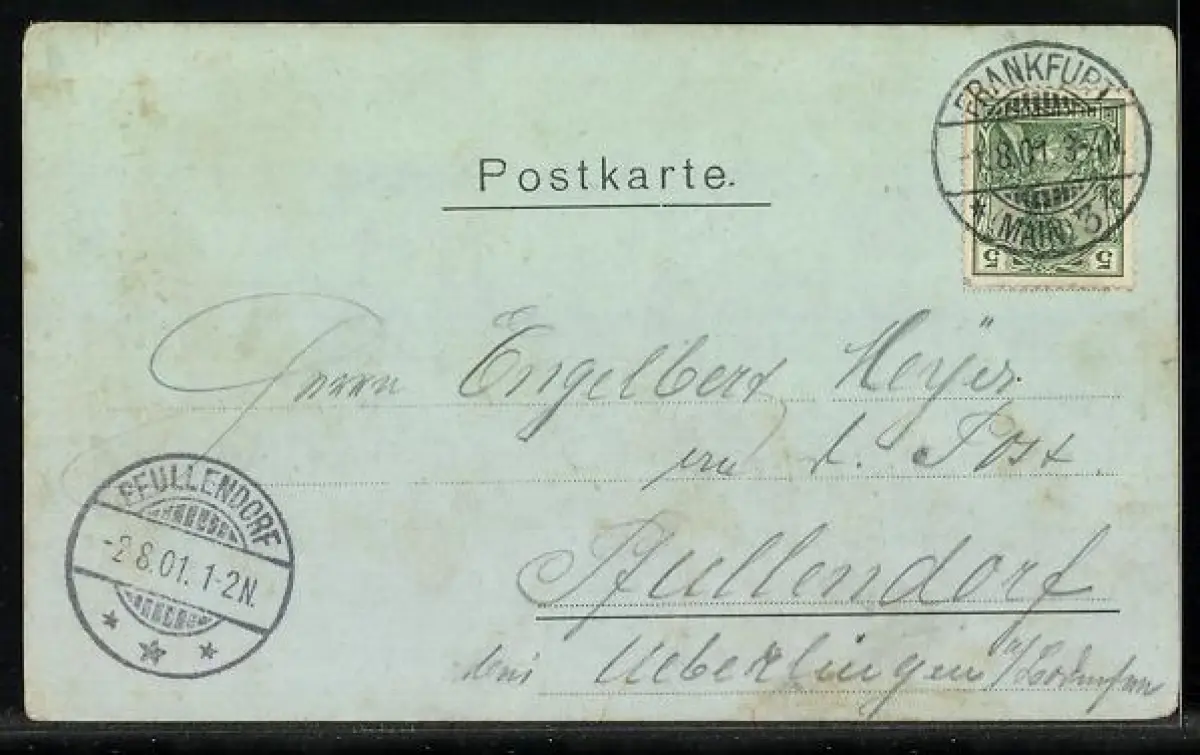 Postkarte.
FRANKFURT
8.01.
(MAIN) 3
5 5
Herrn Engelbert Meyer
d. Post
Pfullendorf
Ueberlingen a/Bodensee
PFULLENDORF
-2.8.01. 1-2N.